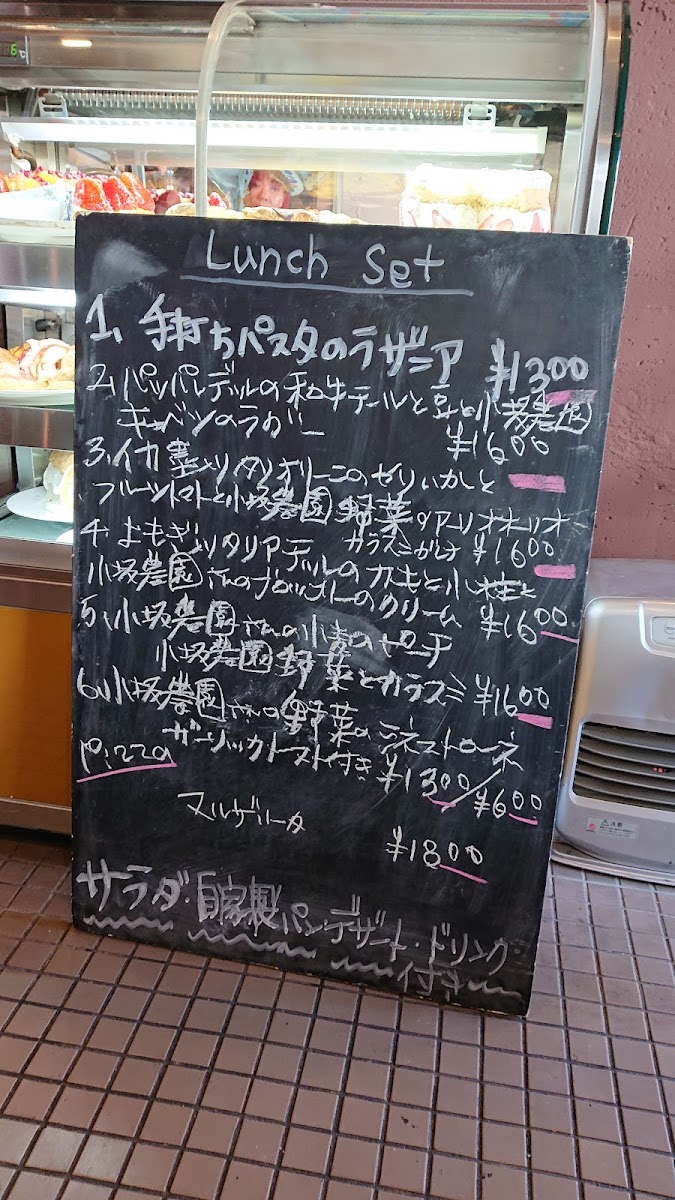 Lunch Set
1、手打ちパスタのラザニア ¥1300
2、パッパルデッレの和牛テールと豆と小坂農園
キャベツのラグー ¥1600
3、イカ墨タリオリーニのやりいかと
フルーツトマトと小坂農園野菜のアーリオオーリオ
カラスミがけ ¥1600
4、よもぎタリアテッレのカモと小柱と
小坂農園さんのブロッコリーのクリーム ¥1600
5、小坂農園さんの小麦のピーチ
小坂農園野菜とカラスミ ¥1600
6、小坂農園さんの野菜のミネストローネ
ガーリックトースト付き ¥1300/¥600
Pizza
マルゲリータ
¥1800
サラダ・自家製パン・デザート・ドリンク・
付き